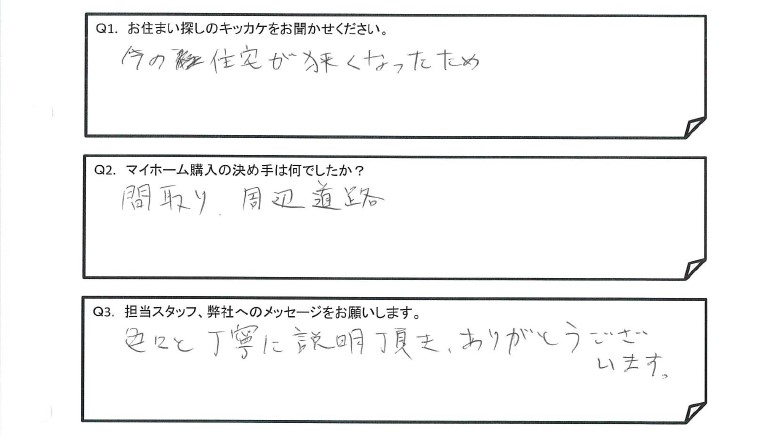 Q1. お住まい探しのキッカケをお聞かせください。
今の住宅が狭くなったため
Q2. マイホーム購入の決め手は何でしたか？
間取り、周辺道路
Q3. 担当スタッフ、弊社へのメッセージをお願いします。
色々と丁寧に説明頂き、ありがとうござ
います。